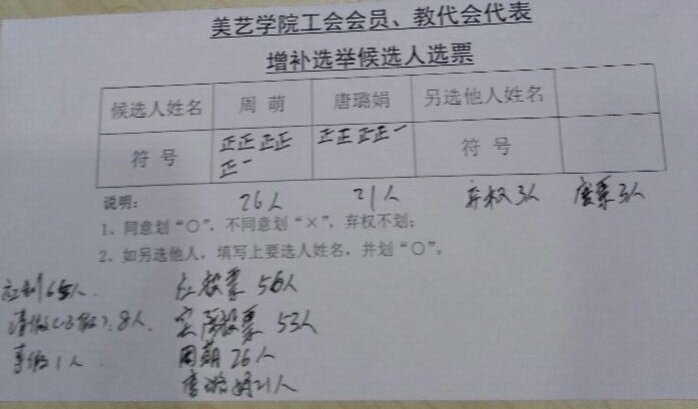 美艺学院工会会员、教代会代表
增补选举候选人选票
候选人姓名 周 萌 唐璐娟 另选他人姓名
符 号 正正正正 正正正正一 符 号
正一
26人 21人 弃权3人 废票3人
说明:
1、同意划“〇”,不同意划“×”,弃权不划;
2、如另选他人,填写上要选人姓名,并划“〇”。
应到65人. 应投票 56人
8人. 实际投票 53人
事假1人 周萌26人
唐璐娟21人